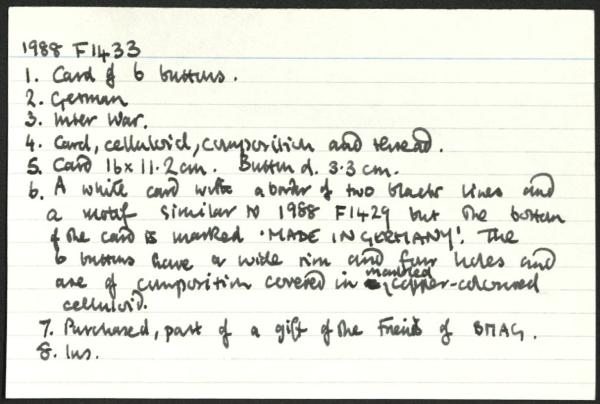 1988 F1433
1. Card of 6 buttons.
2. German
3. Inter War.
4. Card, celluloid, composition and thread.
5. Card 16 x 11.2 cm. Button d. 3.3 cm.
6. A white card with a border of two black lines and
a motif similar to 1988 F1429 but the bottom
of the card is marked 'MADE IN GERMANY'. The
6 buttons have a wide rim and four holes and
are of composition covered in marbled copper-coloured
celluloid.
7. Purchased, part of a gift of the Friends of BMAG.
8. Ins.